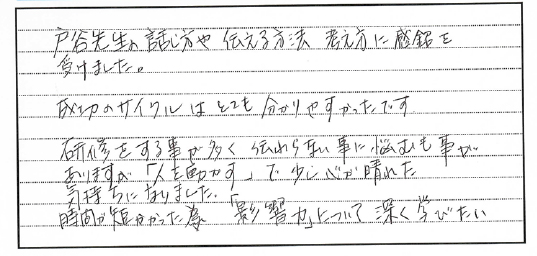 戸谷先生の話し方や伝える方法 考え方に感銘を
受けました。
成功のサイクルはとても分かりやすかったです
研修をする事が多く伝わらない事に悩むも事が
ありますが「人を動かす」で少し心が晴れた
気持ちになりました。
時間が短かかった為「影響力」について深く学びたい